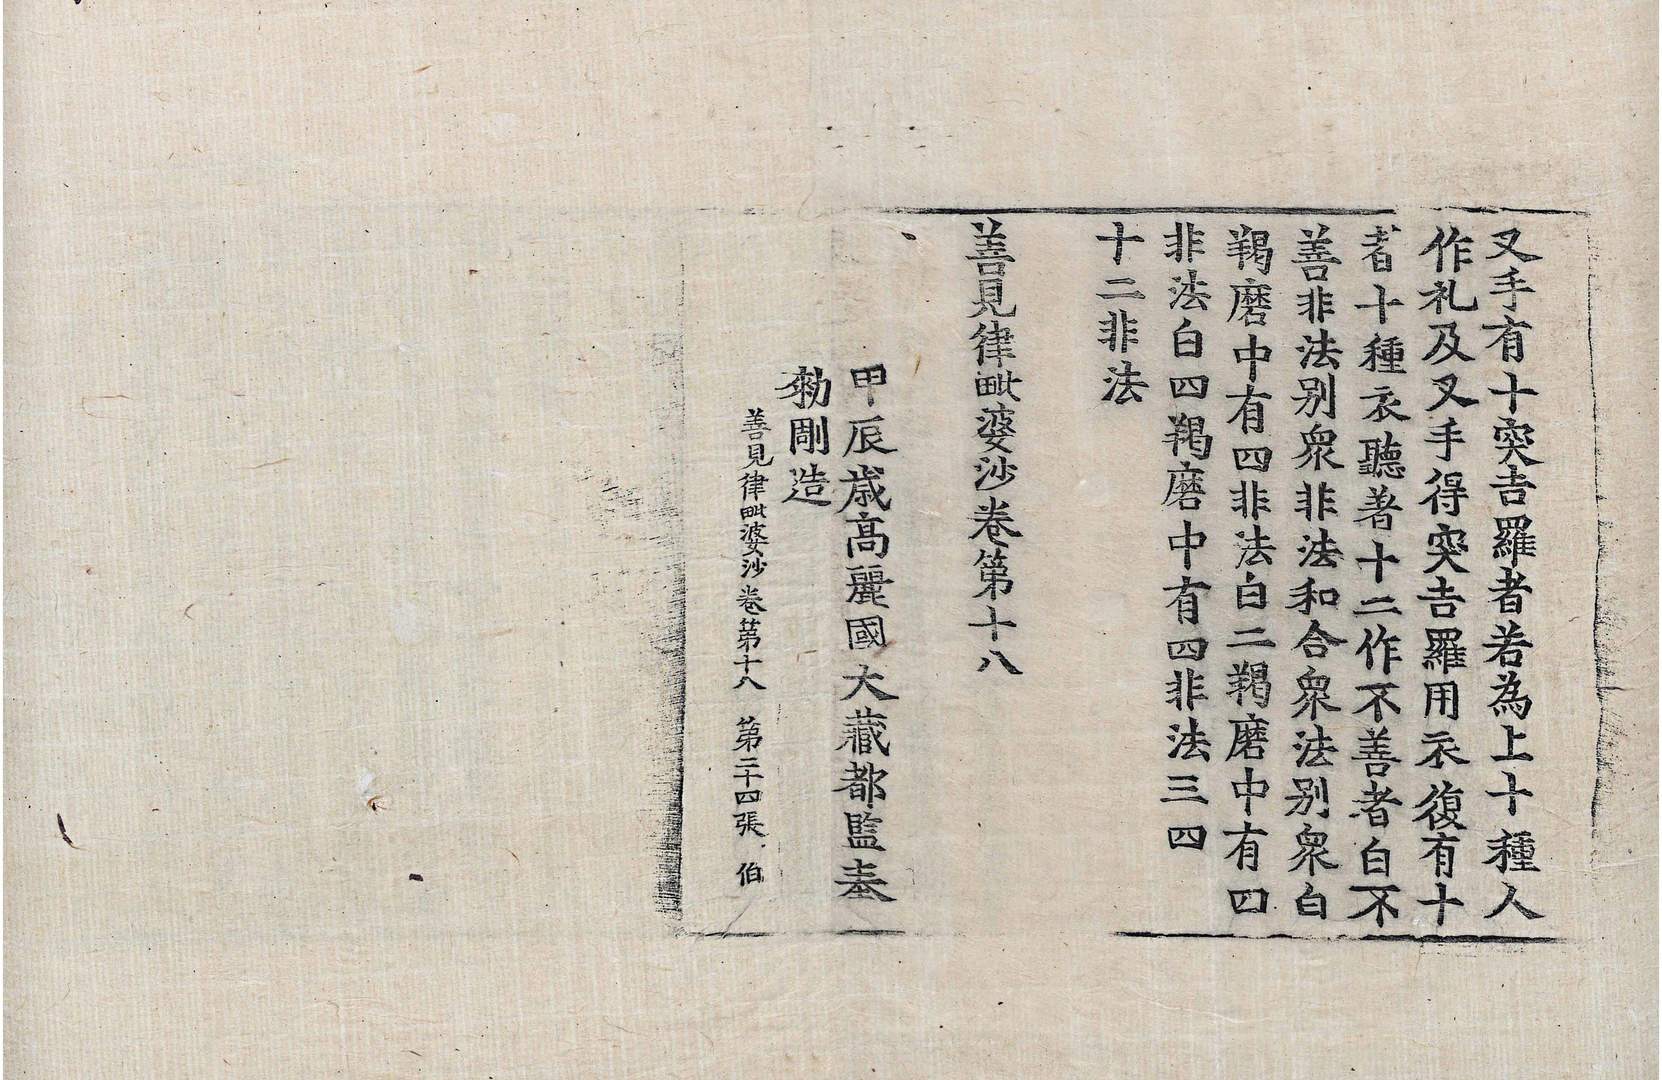 叉手有十突吉羅者若為上十種人
作礼及叉手得突吉羅用衣復有十
者十種衣聽著十二作不善者白不
善非法别衆非法和合衆法别衆白
羯磨中有四非法白二羯磨中有四
非法白四羯磨中有四非法三四
十二非法
善見律毗婆沙卷第十八
甲辰歳髙麗國大藏都監奉
勑剛造
善見律毗婆沙卷第十八 第二十四張 伯